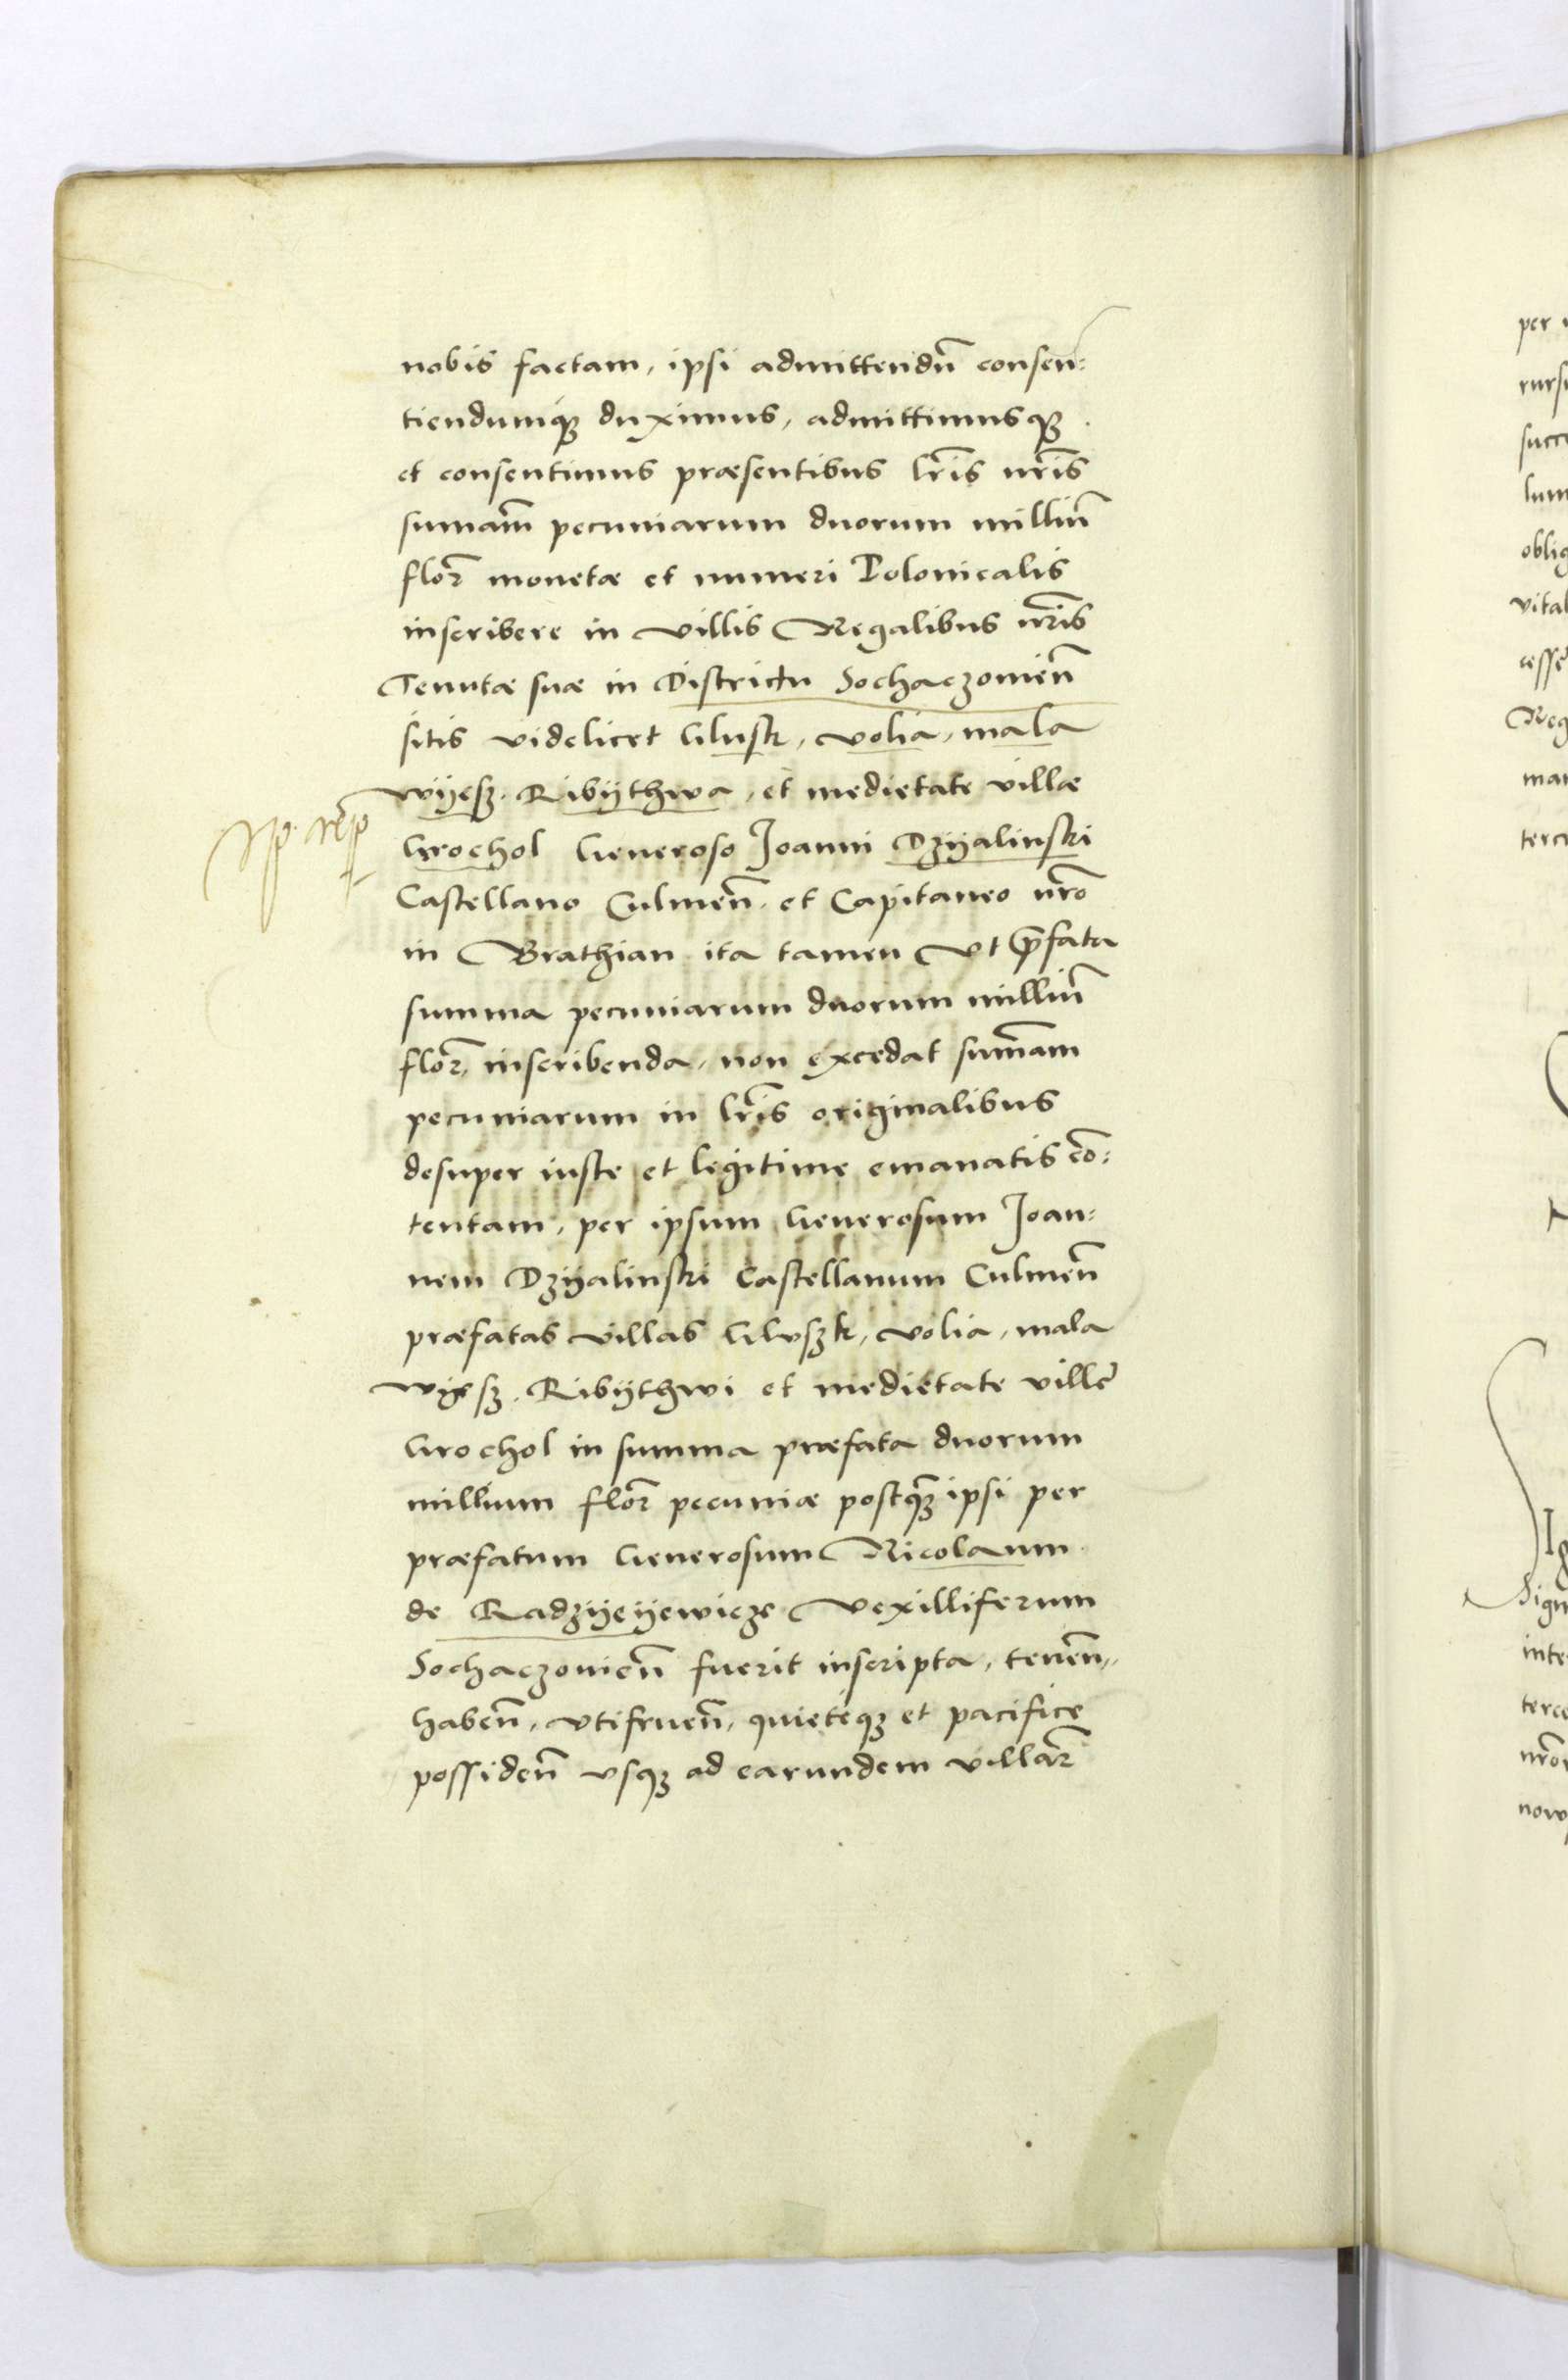 nobis factam, ipsi admittendũ consen:
tiendumq₃ duximus, admittimusq₃
et consentimus præsentibus lr̃is nr̃is
sumam̃ pecuniarum duorum milliũ
flor̃ monetæ et numeri Polonicalis
inscribere in villis Regalibus nr̃is
Tenutæ suæ in Districtu Sochaczouieñ
sitis videlicet Glusk, volia, mala
wÿesz, Ribÿthwa, et medietate villæ
Grochol Generoso Joanni Dzÿalinski
Castellano Culmeñ, et Capitaneo nr̃o
in Brathian ita tamen Vt p̃fata
summa pecuniarum duorum milliũ
flor̃, inscribenda, non excedat sum̃am
pecuniarum in lr̃is originalibus
desuper iuste et legitime emanatis cõ:
tentam, per ipsum Generosum Joan:
nem Dzÿalinski Castellanum Culmeñ
præfatas villas Gluszk, volia, mala
wiesz, Ribÿthwi et medietate ville
Grochol in summa præfata duorum
millium flor̃ pecuniæ postq₃ ipsi per
præfatum Generosum Nicolaum
de Radzÿeÿewicze Vexilliferum
Sochaczouieñ fuerit inscripta, teneñ,
habeñ, vtifrueñ, quieteq₃ et pacifice
possideñ vsq₃ ad earundem villar̃
per
rurs
succ
lum
oblig
vital
cesse
Reg
man
terc
Sign
inte
terce
nr̃or
now